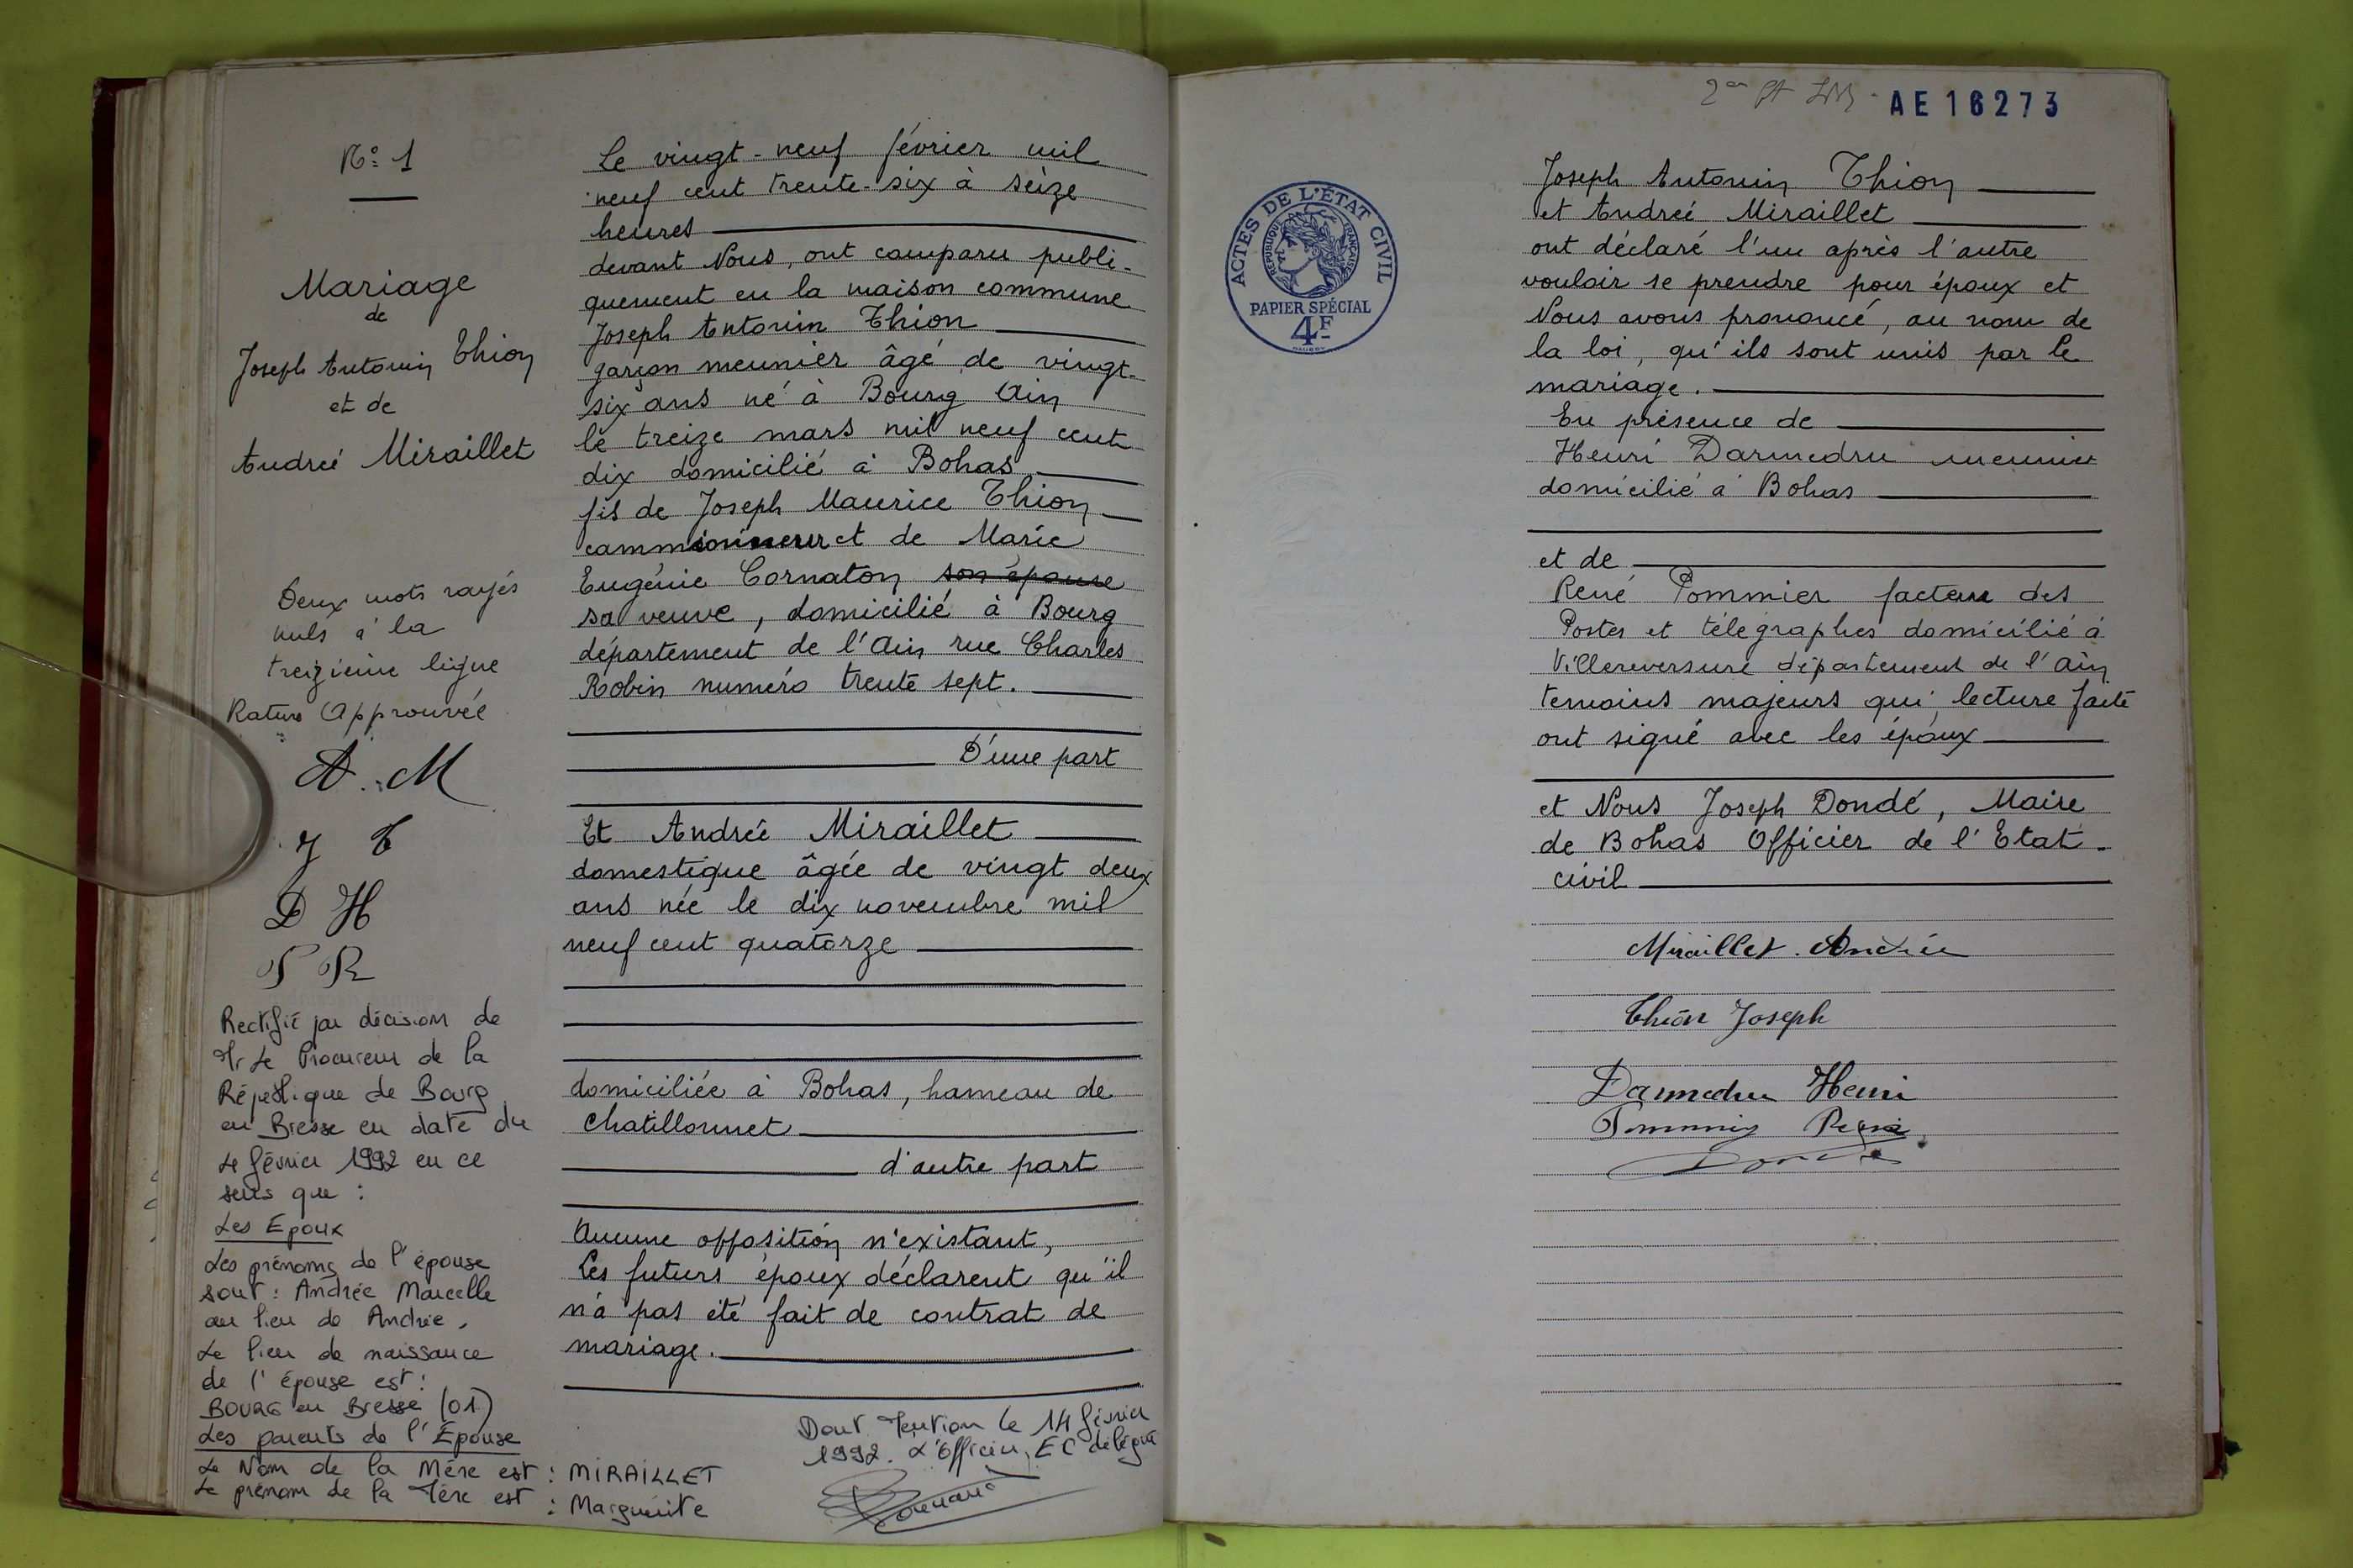 N° 1
Mariage
de
Joseph Antonin Thion
et de
Andreé Miraillet
Deux mots rayés
nuls à la
treizième ligne
Rature Approuvée
A. M
J T
D H
P R
Rectifié par décision de
Mr Le Procureur de la
République de Bourg
en Bresse en date du
4 février 1992 en ce
sens que :
Les Epoux
Les prénoms de l'épouse
sont : Andrée Marcelle
au lieu de Andrée.
Le lieu de naissance
de l'épouse est :
BOURG en Bresse (01)
Les parents de l'Épouse
Le Nom de la Mère est : MIRAILLET
Le prénom de la Mère est : Marguerite
Le vingt-neuf février mil
neuf cent trente-six à seize
heures
devant Nous, ont comparu publi-
quement en la maison commune
Joseph Antonin Thion
garçon meunier âgé de vingt-
six ans né à Bourg Ain
le treize mars mil neuf cent
dix domicilié à Bohas
fils de Joseph Maurice Thion
cammionneur et de Marie
Eugénie Cornaton son épouse
sa veuve, domicilié à Bourg
département de l'Ain rue Charles
Robin numéro trente sept.
D'une part
Et Andrée Miraillet
domestique âgée de vingt deux
ans née le dix novembre mil
neuf cent quatorze
domiciliée à Bohas, hameau de
Chatillonnet
d'autre part
Aucune opposition n'existant,
Les futurs époux déclarent qu'il
n'a pas été fait de contrat de
mariage.
Dont Mention le 14 février
1992. L'Officier EC délégué
AE 16273
ACTES DE L'ÉTAT CIVIL
RÉPUBLIQUE FRANÇAISE
PAPIER SPÉCIAL
4F
Joseph Antonin Thion
et Andreé Miraillet
ont déclaré l'un après l'autre
vouloir se prendre pour époux et
Nous avons prononcé, au nom de
la loi, qu'ils sont unis par le
mariage.
En présence de
Henri Darmedru meunier
domicilié à Bohas
et de
René Pommier facteur des
Postes et télégraphes domicilié à
Villereversure département de l'Ain
temoins majeurs qui, lecture faite
ont signé avec les époux
et Nous Joseph Dondé, Maire
de Bohas Officier de l'Etat-
civil
Miraillet Andrée
Thion Joseph
Darmedru Henri
Pommier René
Dondé